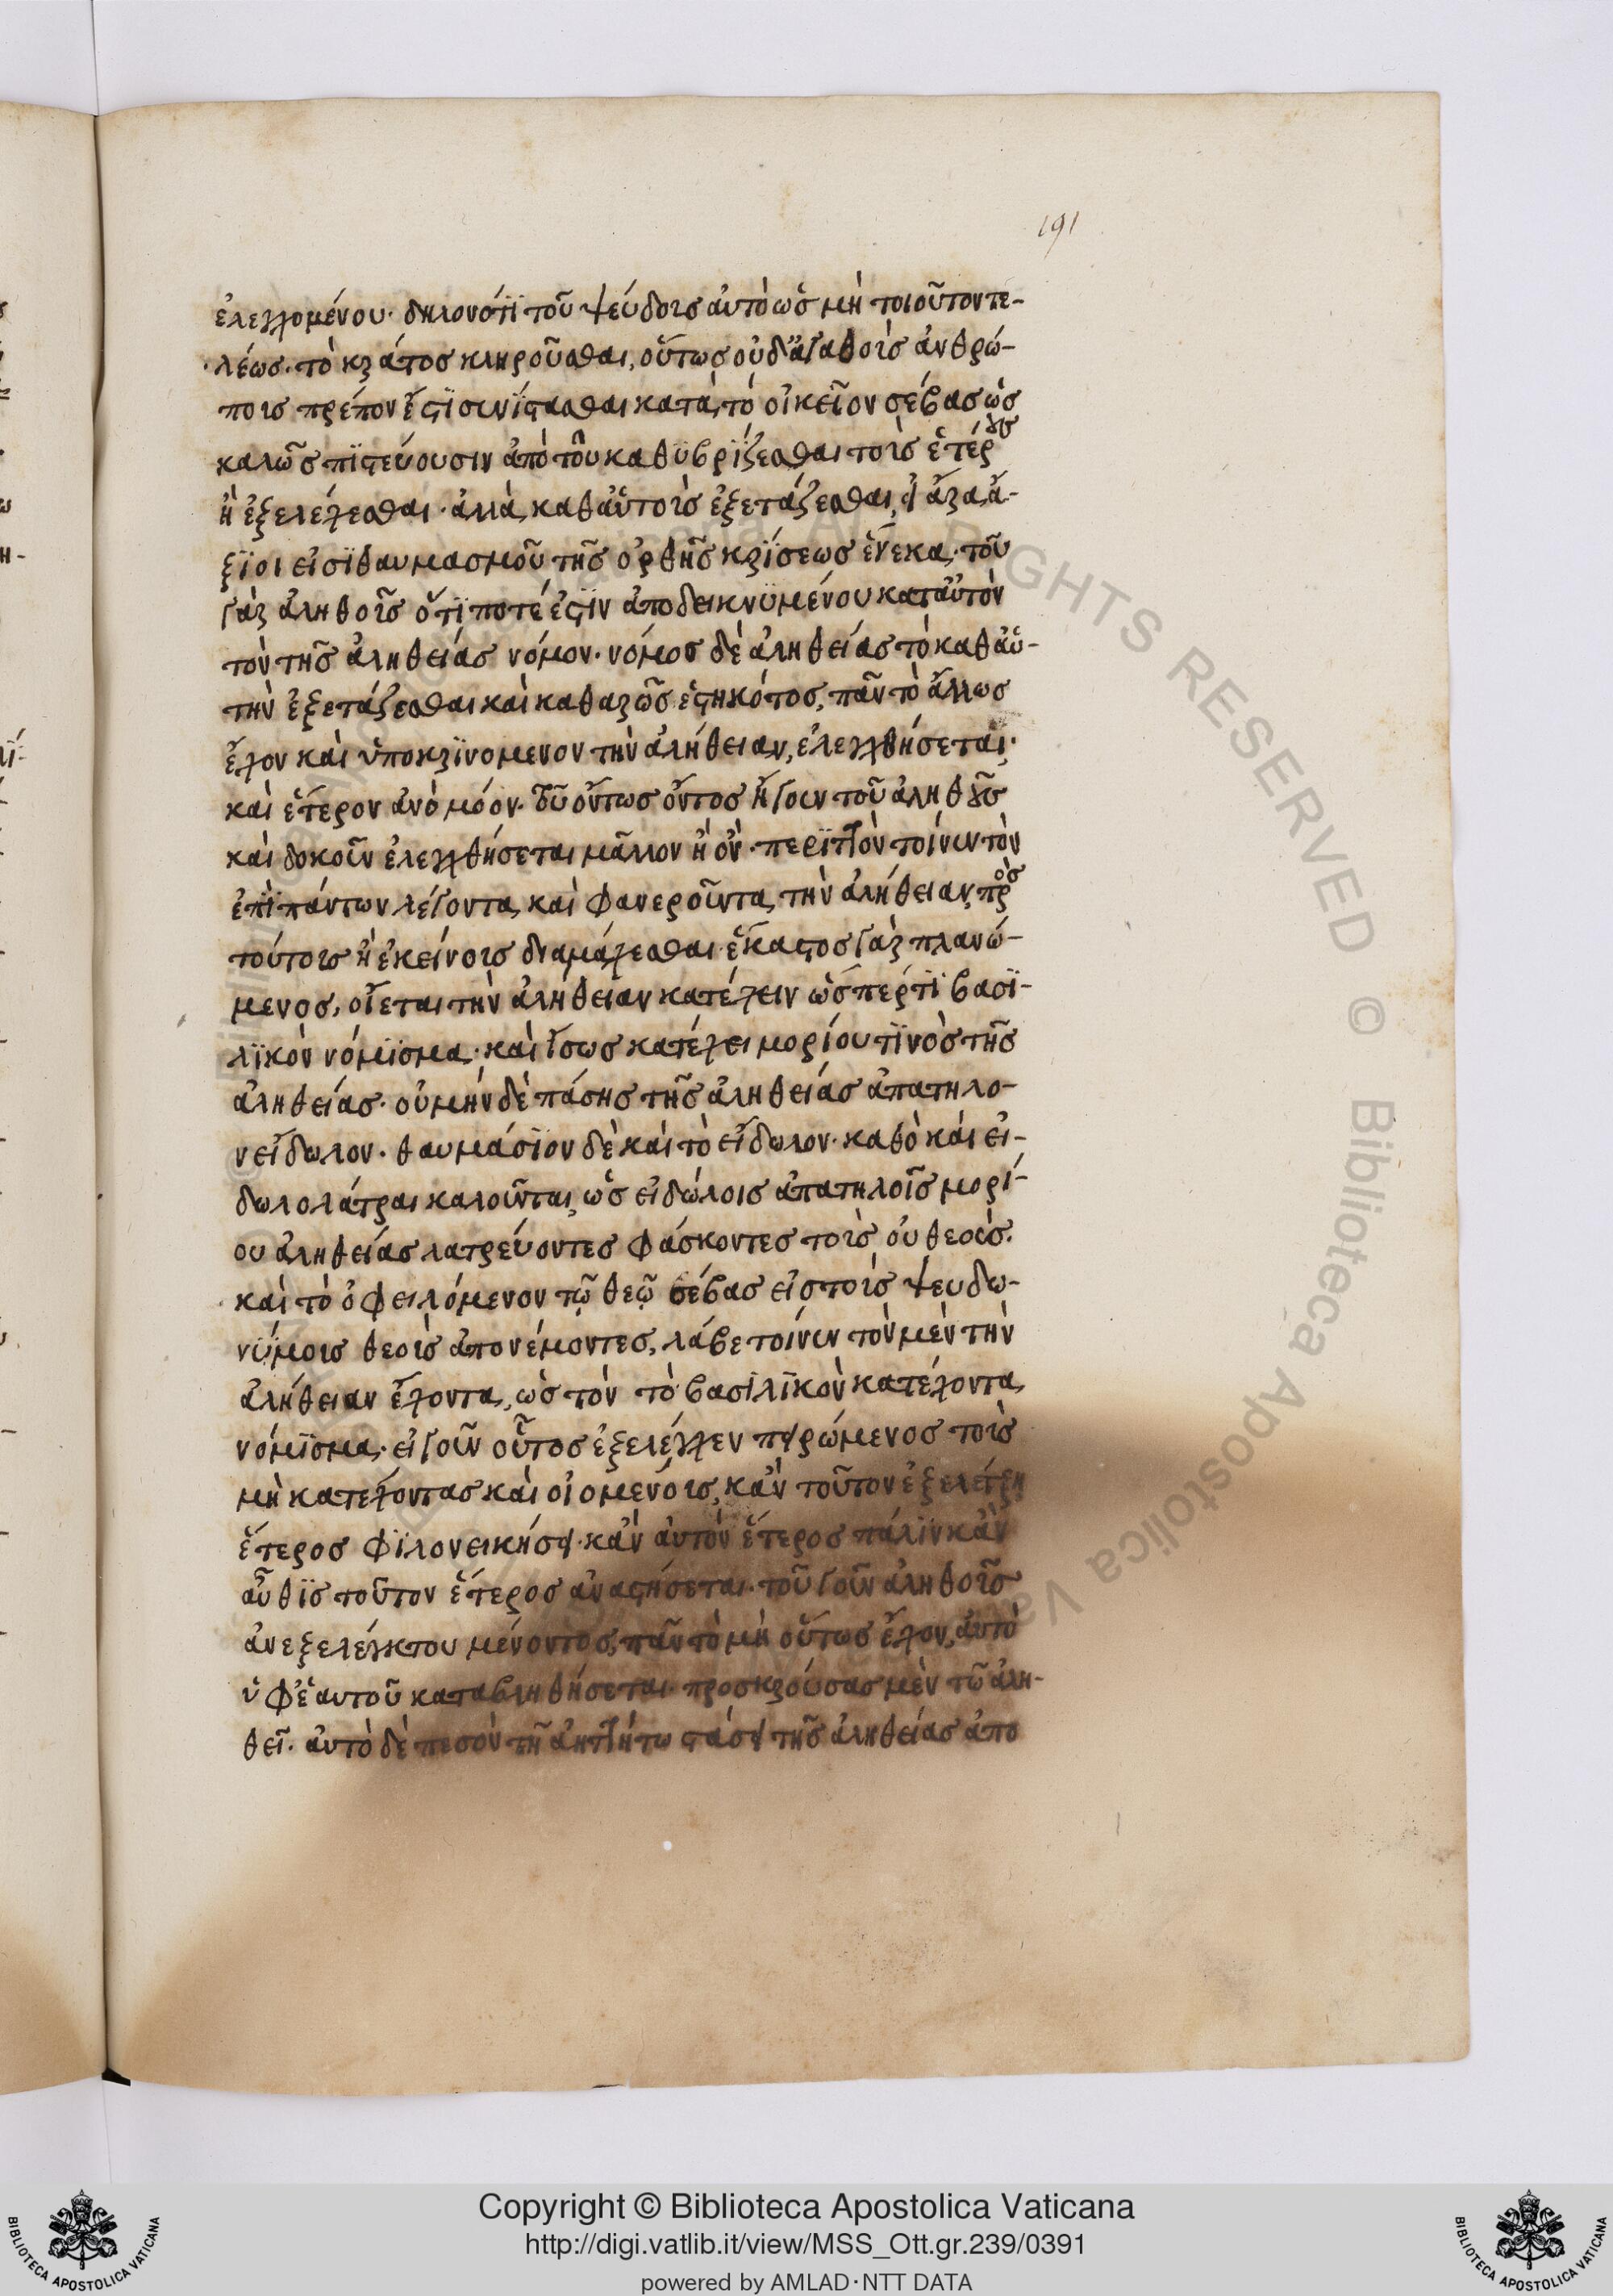 191
ἐλεγχομένου· δηλονότϊ τοῦ ψεύδους αὐτὸ ὡς μὴ τοιοῦτον τε-
λέως· τὸ κράτος κληροῦσθαι, οὕτως οὐδ' ἀγαθοῖς ἀνθρώ-
ποις πρέπον ἐστὶ συνίστασθαι κατὰ τὸ οἰκεῖον σέβας ὡς
καλῶς πϊστεύουσιν ἀπὸ τοῦ καθϋβρϊζεσθαι τοὺς ἑτέρους
ἢ ἐξελέγχεσθαι· ἀλλὰ καθ' αὑτοὺς ἐξετάζεσθαι, εἰ ἄρα ἄ-
ξϊοι εἰσϊ θαυμασμοῦ τῆς ὀρθῆς κρϊσεως ἕνεκα· τοῦ
γὰρ ἀληθοῦς ὅτϊ ποτέ ἐστϊν ἀποδεικνϋμένου κατ' αὐτὸν
τὸν τῆς ἀληθείας νόμον· νόμος δὲ ἀληθείας τὸ καθ' αὑ-
τὴν ἐξετάζεσθαι καὶ καθαρῶς ἑστηκότος, πᾶν τὸ ἄλλως
ἔχον καὶ ὑποκρϊνομενον τὴν ἀλήθειαν, ἐλεγχθήσεται·
καὶ ἕτερον ἀνόμοον· τοῦ ὄντως ὄντος ἤγουν τοῦ ἀληθοῦς
καὶ δοκοῦν ἐλεγχθήσεται μᾶλλον ἢ ὄν· περϊττὸν τοίνυν τὸν
ἐπϊ πάντων λέγοντα καὶ φανεροῦντα τὴν ἀλήθειαν, πρὸς
τούτους ἢ ἐκείνους διαμάχεσθαι· ἕκαστος γὰρ πλανώ-
μενος, οἴεται τὴν ἀλήθειαν κατέχειν ὥσπέρ τϊ βασϊ-
λϊκὸν νόμϊσμα· καὶ ἴσως κατέχει μορίου τϊνὸς τῆς
ἀληθείας· οὐ μὴν δὲ πάσης τῆς ἀληθείας ἀπατηλο-
ν εἴδωλον· θαυμάσϊον δὲ καὶ τὸ εἴδωλον· καθὸ καὶ εἰ-
δωλολάτραι καλοῦνται, ὡς εἰδώλοις ἀπατηλοῖς μορί-
ου ἀληθείας λατρεύοντες φάσκοντες τοὺς οὐ θεοὺς·
καὶ τὸ ὀφειλόμενον τῷ θεῷ σέβας εἰς τοὺς ψευδω-
νϋμους θεοὺς ἀπονέμοντες, λάβε τοίνυν τὸν μὲν τὴν
ἀλήθειαν ἔχοντα, ὡς τὸν τὸ βασιλϊκὸν κατέχοντα
νόμϊσμα· εἰ γοῦν οὗτος ἐξελέγχειν πειρώμενος τοὺς
μὴ κατέχοντας καὶ οἰομένους, κἂν τοῦτον ἐξελέγξη
ἕτερος φϊλονεικήσει· κἂν αὐτὸν ἕτερος πάλϊν κἂν
αὖθϊς τοῦτον ἕτερος ἀναστήσεται· τοῦ γοῦν ἀληθοῦς
ἀνεξελέγκτου μένοντος, πᾶν τὸ μὴ οὕτως ἔχον, αὐτὸ
ὑφ' ἑαυτοῦ καταβληθήσεται· προσκρούσας μὲν τῶ ἀλη-
θεῖ· αὐτὸ δὲ πεσὸν τῆ ἀηττήτω στάσει τῆς ἀληθείας ἀπο
Copyright © Biblioteca Apostolica Vaticana
http://digi.vatlib.it/view/MSS_Ott.gr.239/0391
powered by AMLAD·NTT DATA